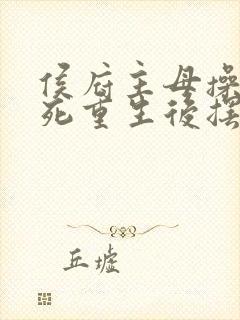 侯府主母操
死重生後摆
丘墟